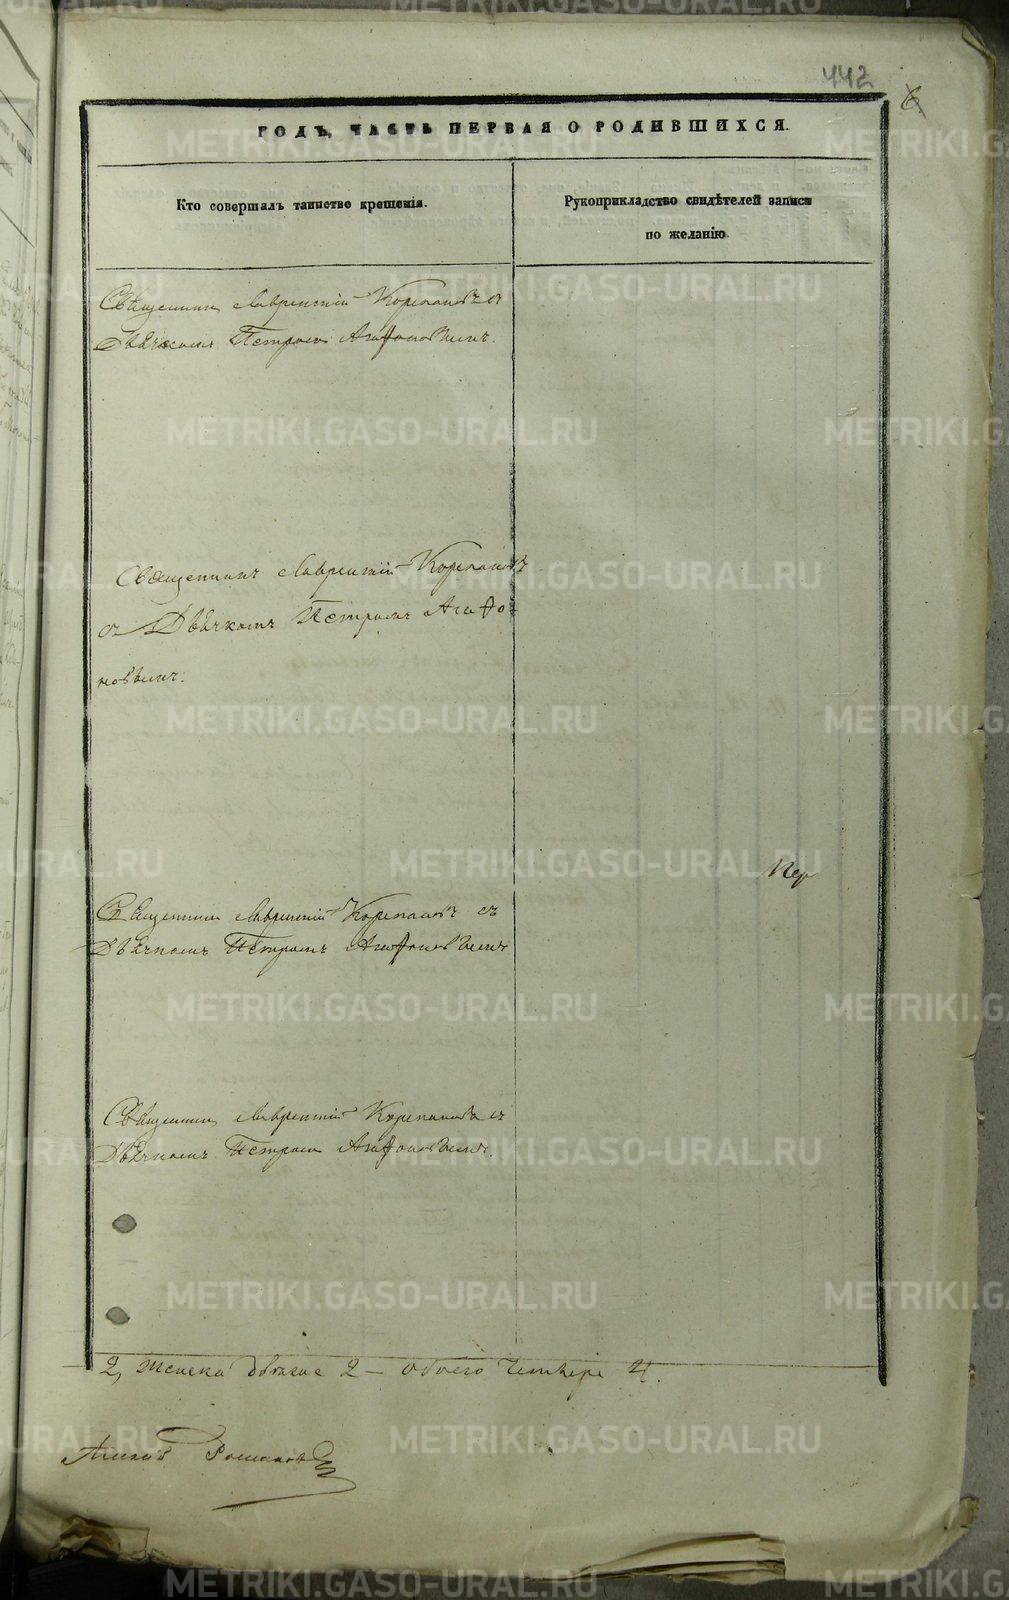 442
6
ГОДЪ, ЧАСТЬ ПЕРВАЯ О РОДИВШИХСЯ.
Кто совершалъ таинство крещенія.
Рукоприкладство свидѣтелей записи
по желанію.
Священникъ Лаврентій Корепановъ съ
Дьячкомъ Петромъ Агафоновымъ.
Священникъ Лаврентій Корепановъ
съ Дьячкомъ Петромъ Агафо-
новымъ.
Пер
Священникъ Лаврентій Корепановъ съ
Дьячкомъ Петромъ Агафоновымъ
Священникъ Лаврентій Корепановъ съ
Дьячкомъ Петромъ Агафоновымъ.
2, женска двѣ 2 – обоего четверо 4.
Романовъ
METRIKI.GASO-URAL.RU